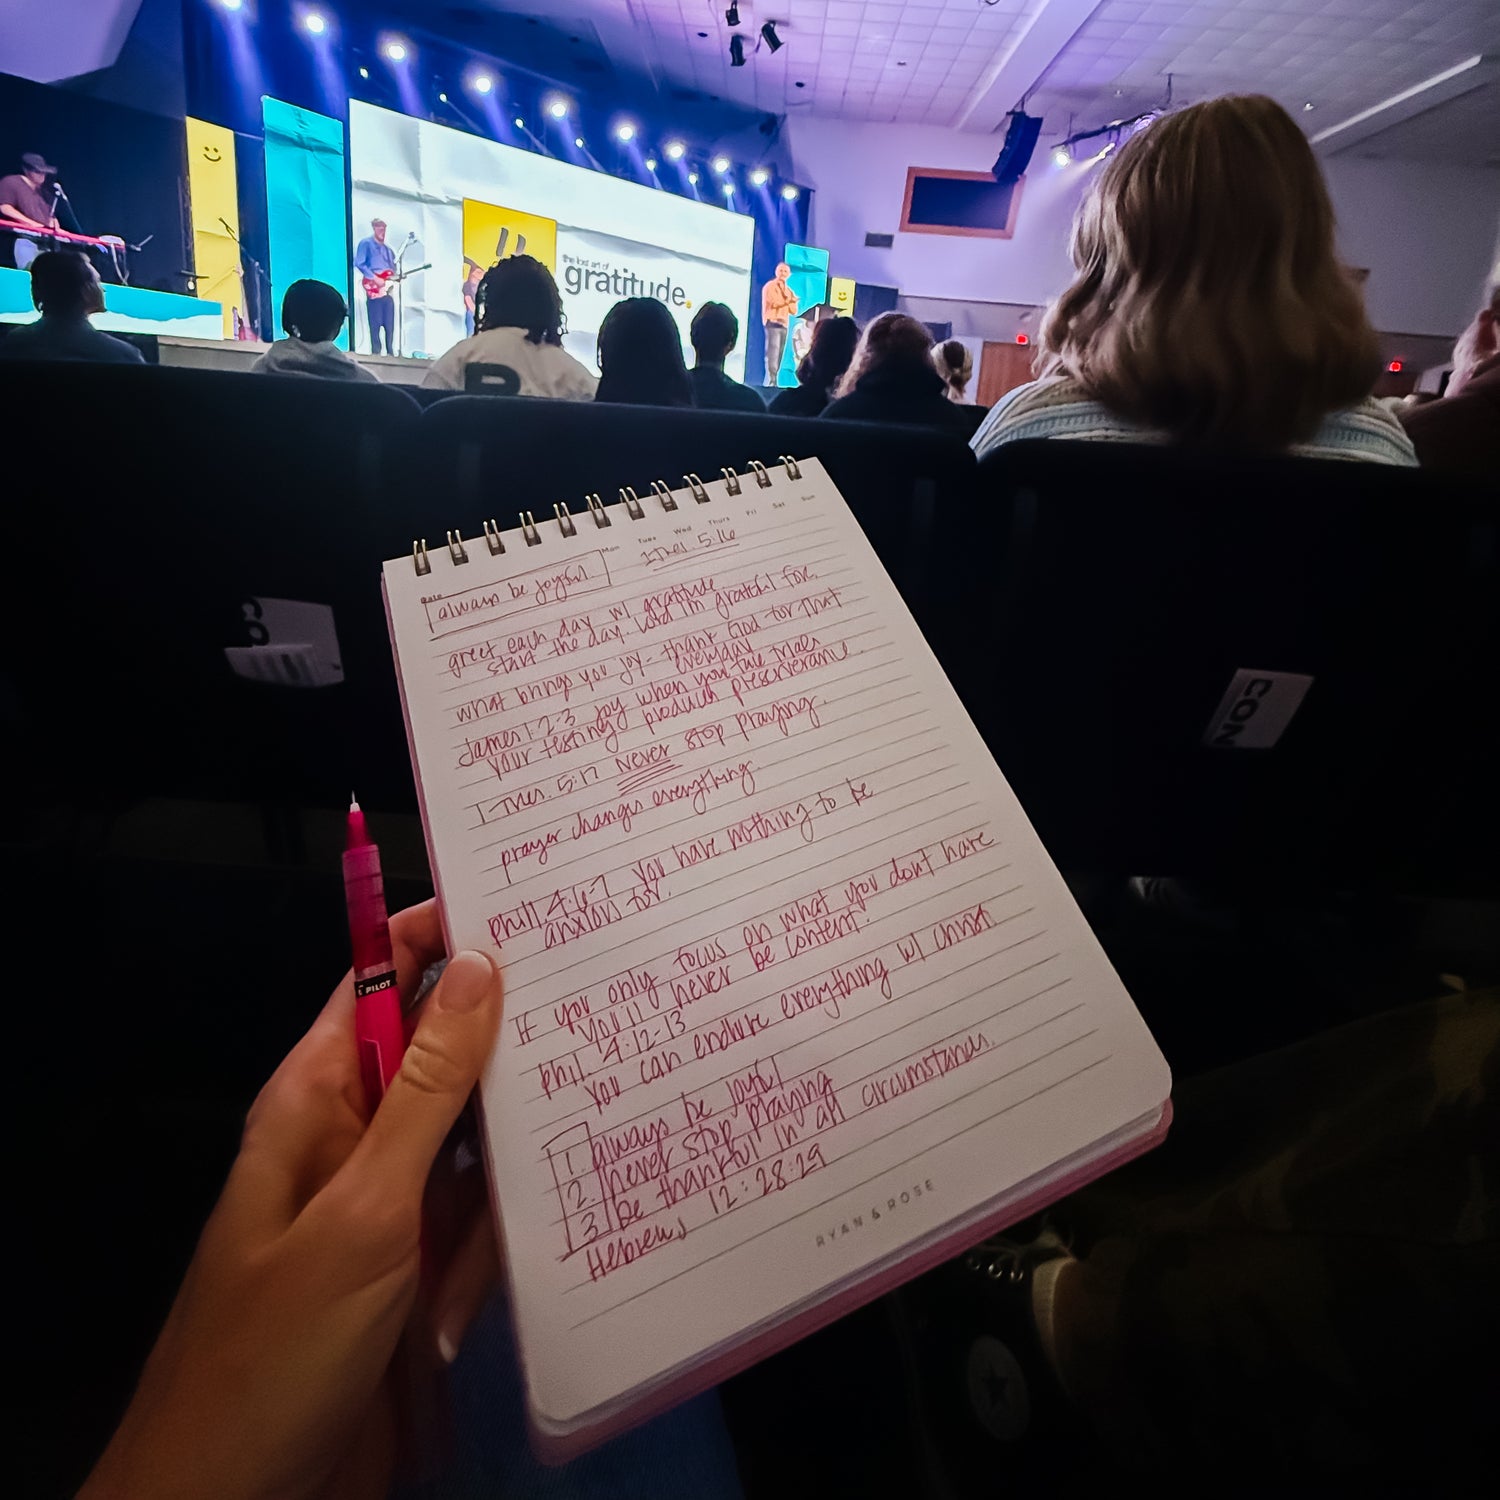 the lost art of
gratitude.
CO
CON
Mon Tues Wed Thurs Fri Sat Sun
Date
always be joyful.
1 Thes. 5:16
greet each day w/ gratitude
start the day. Lord I'm grateful for.
what brings you joy - thank God for that
everyday
James 1:2-3 joy when you face trials
your testing produces
1 Thes. 5:17 Never stop praying.
prayer changes everything.
phill 4:6-7 you have nothing to be
anxious for.
If you only focus on what you dont have
you'll never be content.
phil. 4:12-13
you can endure everything w/ christ
1. always be joyful
2. never stop praying
3. be thankful in all circumstances.
Hebrews 12:28-29
RYAN & ROSE
PILOT